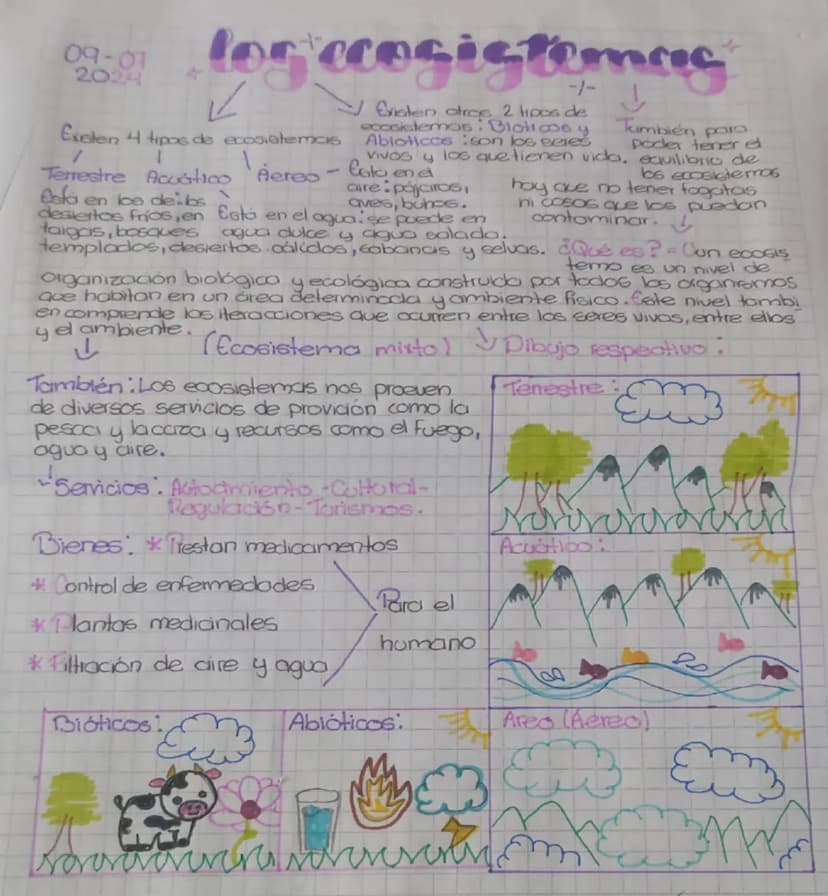 09-07
2024
los ecosistemas
Existen 4 tipos de ecosistemas
Terrestre Acuático Aereo - Esta en el
aire: pájaros,
aves, buhos.
Existen otros 2 tipos de
ecosistemas: Bioticos y
Abioticos: son los seres
vivos y los que tienen vida.
También para
poder tener el
equilibrio de
los ecosistemas
hay que no tener fogatas
ni cosas que los puedan
contaminar.
Está en los de: los
desiertos fríos, en
taigas, bosques
templados, desiertos cálidos, sabanas y selvas.
Está en el agua: se puede en
agua dulce y agua salada.
¿Qué es? = Un ecosis
tema es un nivel de
organización biológica y ecológica construido por todos los organismos
que habitan en un área determinada y ambiente físico. Este nivel tambi
en comprende las iteracciones que ocurren entre los seres vivos, entre ellos
y el ambiente.
(Ecosistema mixto) Dibujo respectivo:
También: Los ecosistemas nos proeven
de diversos servicios de provición como la
pesca y la caza y recursos como el fuego,
agua y aire.
Servicios: - Cultural -
Regulación - Turismos.
Bienes: * Prestan medicamentos
* Control de enfermedades
* Plantas medicinales
* Filtración de aire y agua
Para el
humano
Terrestre:
Acuático:
Area (Aéreo)
Bióticos:
Abióticos: